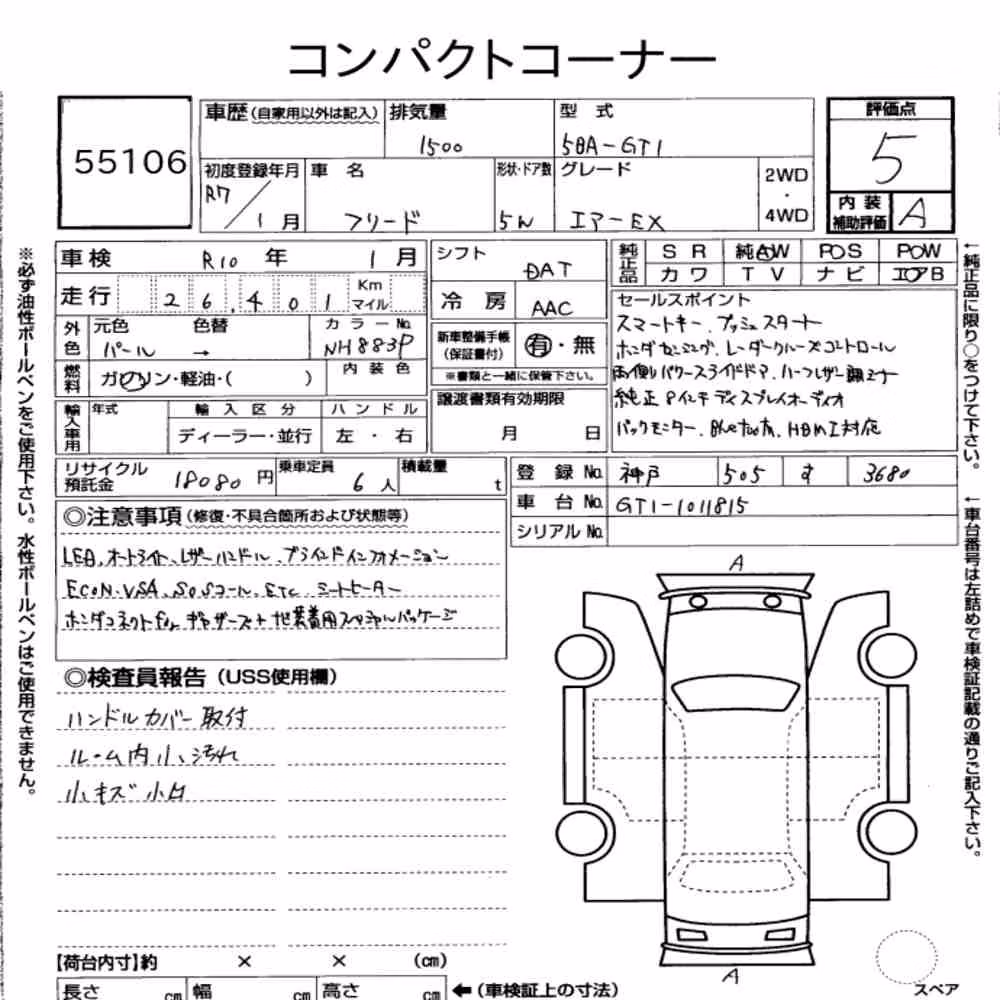 コンパクトコーナー
55106
車歴(自家用以外は記入)
排気量
1500
型 式
5BA-GT1
評価点
5
初度登録年月
R7/1月
車 名
フリード
形状・ドア数
5W
グレード
エアーEX
2WD
・
4WD
内 装
補助評価
A
車検 R10 年 1 月
走行 26,401 Km マイル
シフト
DAT
冷 房
AAC
純正品
S R 純AW POS POW
カワ TV ナビ エアB
外色
元色 色替
パール →
カラーNo.
NH883P
燃料
ガソリン・軽油・( )
内 装 色
新車整備手帳
(保証書付)
有・無
※書類と一緒に保管下さい。
セールスポイント
スマートキー、プッシュスタート
ホンダセンシング、レーダークルーズコントロール
両側パワースライドドア、ハーフレザー調ミナー
純正8インチディスプレイオーディオ
バックモニター、Bluetooth、HDMI対応
輸入車用
年式
輸 入 区 分
ディーラー・並行
ハ ン ド ル
左 ・ 右
譲渡書類有効期限
月 日
リサイクル
預託金
18080 円
乗車定員
6 人
積載量
t
登 録 No. 神戸 505 す 3680
車 台 No. GT1-1011815
シリアル No.
◎注意事項(修復・不具合箇所および状態等)
LED、オートライト、レザーハンドル、ブラインドインフォメーション
ECON、VSA、SOSコール、ETC シートヒーター
ホンダコネクトfor ギャザーズ+地装着用スペシャルパッケージ
◎検査員報告(USS使用欄)
ハンドルカバー取付
ルーム内小、汚れ
小キズ小凹
A
A
スペア
【荷台内寸】約 × × (cm)
長さ cm 幅 cm 高さ cm
←(車検証上の寸法)
※必ず油性ボールペンをご使用下さい。水性ボールペンはご使用できません。
←純正品に限り○をつけて下さい。
←車台番号は左詰めで車検証記載の通りご記入下さい。